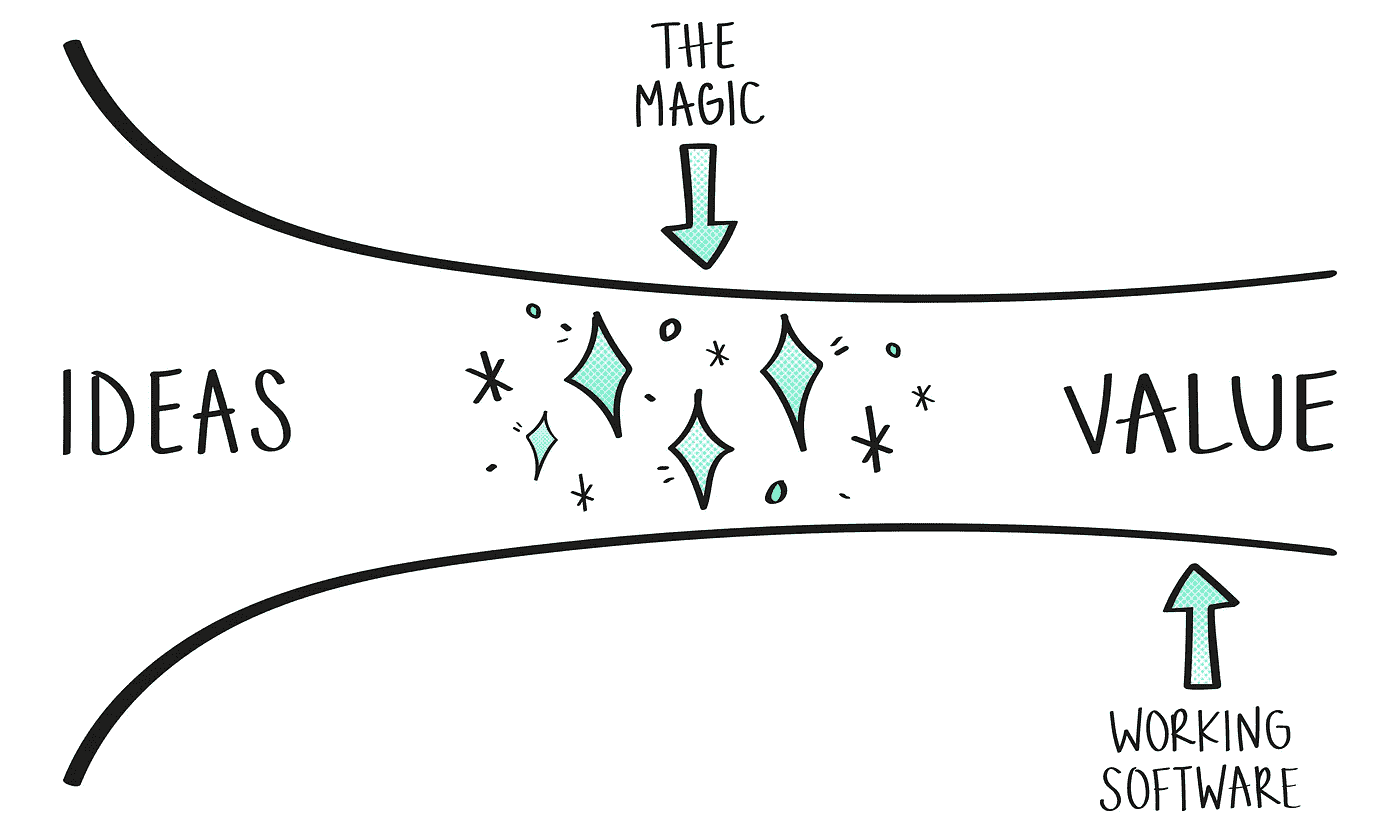 THE
MAGIC
IDEAS
VALUE
WORKING
SOFTWARE